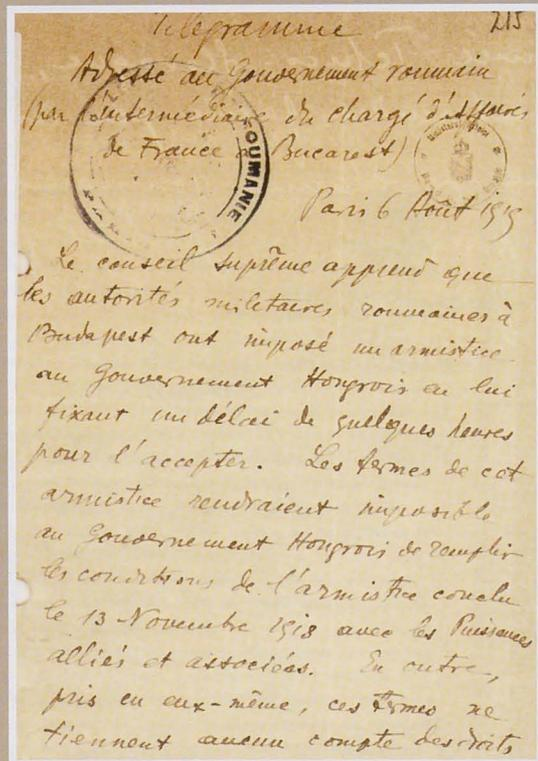 215
Télégramme
Adressé au Gouvernement roumain
(par l'intermédiaire du chargé d'affaires
de France à Bucarest)
OUMANIE
Paris 6 Août 1919
Le conseil suprême apprend que
les autorités militaires roumaines à
Budapest ont imposé un armistice
au Gouvernement Hongrois en lui
fixant un délai de quelques heures
pour l'accepter. Les termes de cet
armistice rendraient impossible
au Gouvernement Hongrois de remplir
les conditions de l'armistice conclu
le 13 Novembre 1918 avec les Puissances
alliés et associées. En outre,
pris en eux-même, ces termes ne
tiennent aucun compte des droits